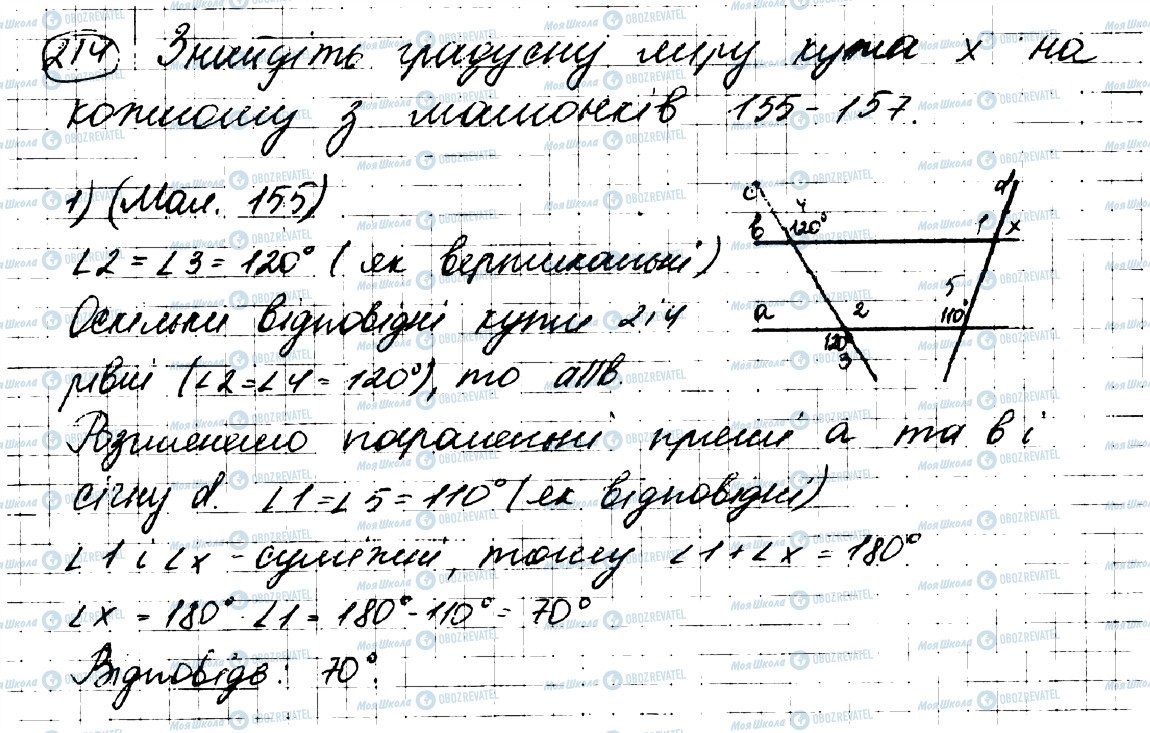 214 Знайдіть градусну міру кута x на
кожному з малюнків 155-157.
1) (Мал. 155)
∠2=∠3=120° (як вертикальні)
Оскільки відповідні кути 2 і 4
рівні (∠2=∠4=120°), то a||b.
Розглянемо паралельні прямі a та b і
січну d. ∠1=∠5=110° (як відповідні)
∠1 і ∠x - суміжні, тому ∠1+∠x=180°.
∠x = 180° - ∠1 = 180° - 110° = 70°
Відповідь: 70°.
c d
4
b 120° 1 x
5
a 2 110°
120°
3